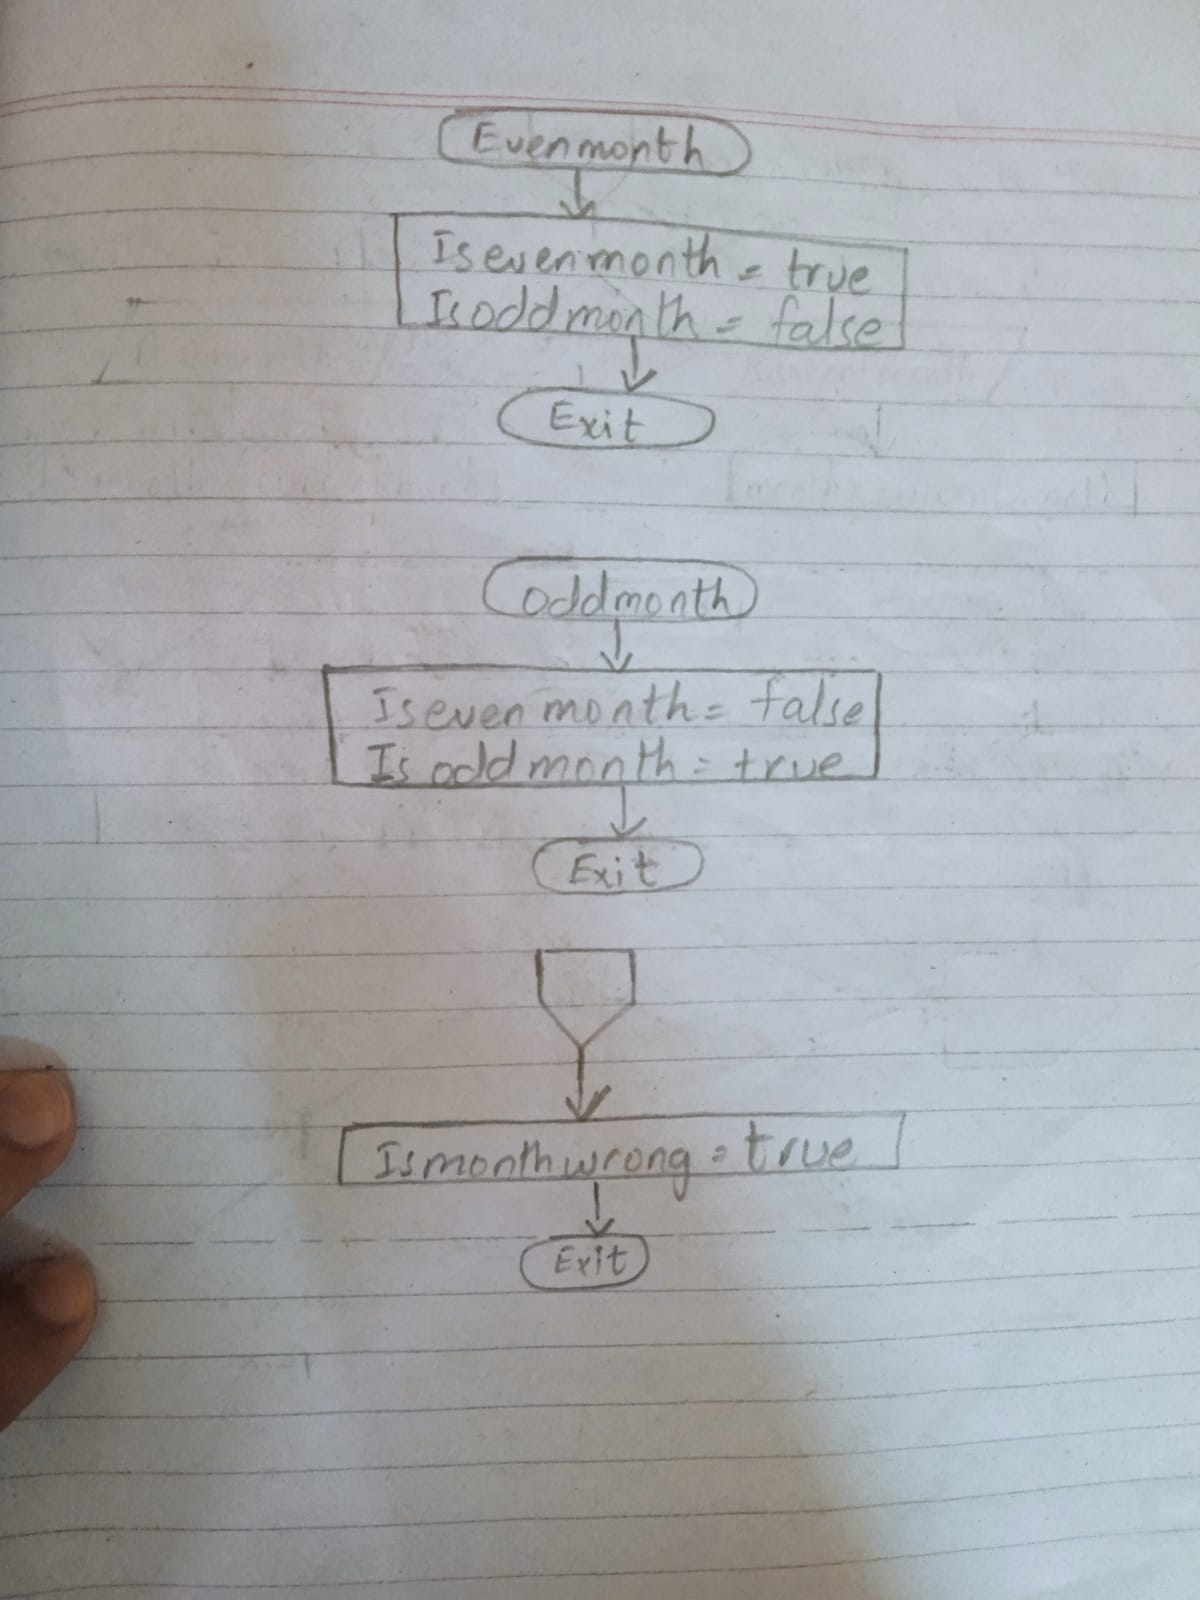 Evenmonth
Isevenmonth = true
Isoddmonth = false
Exit
oddmonth
Iseven month = false
Is odd month = true
Exit
Ismonthwrong = true
Exit